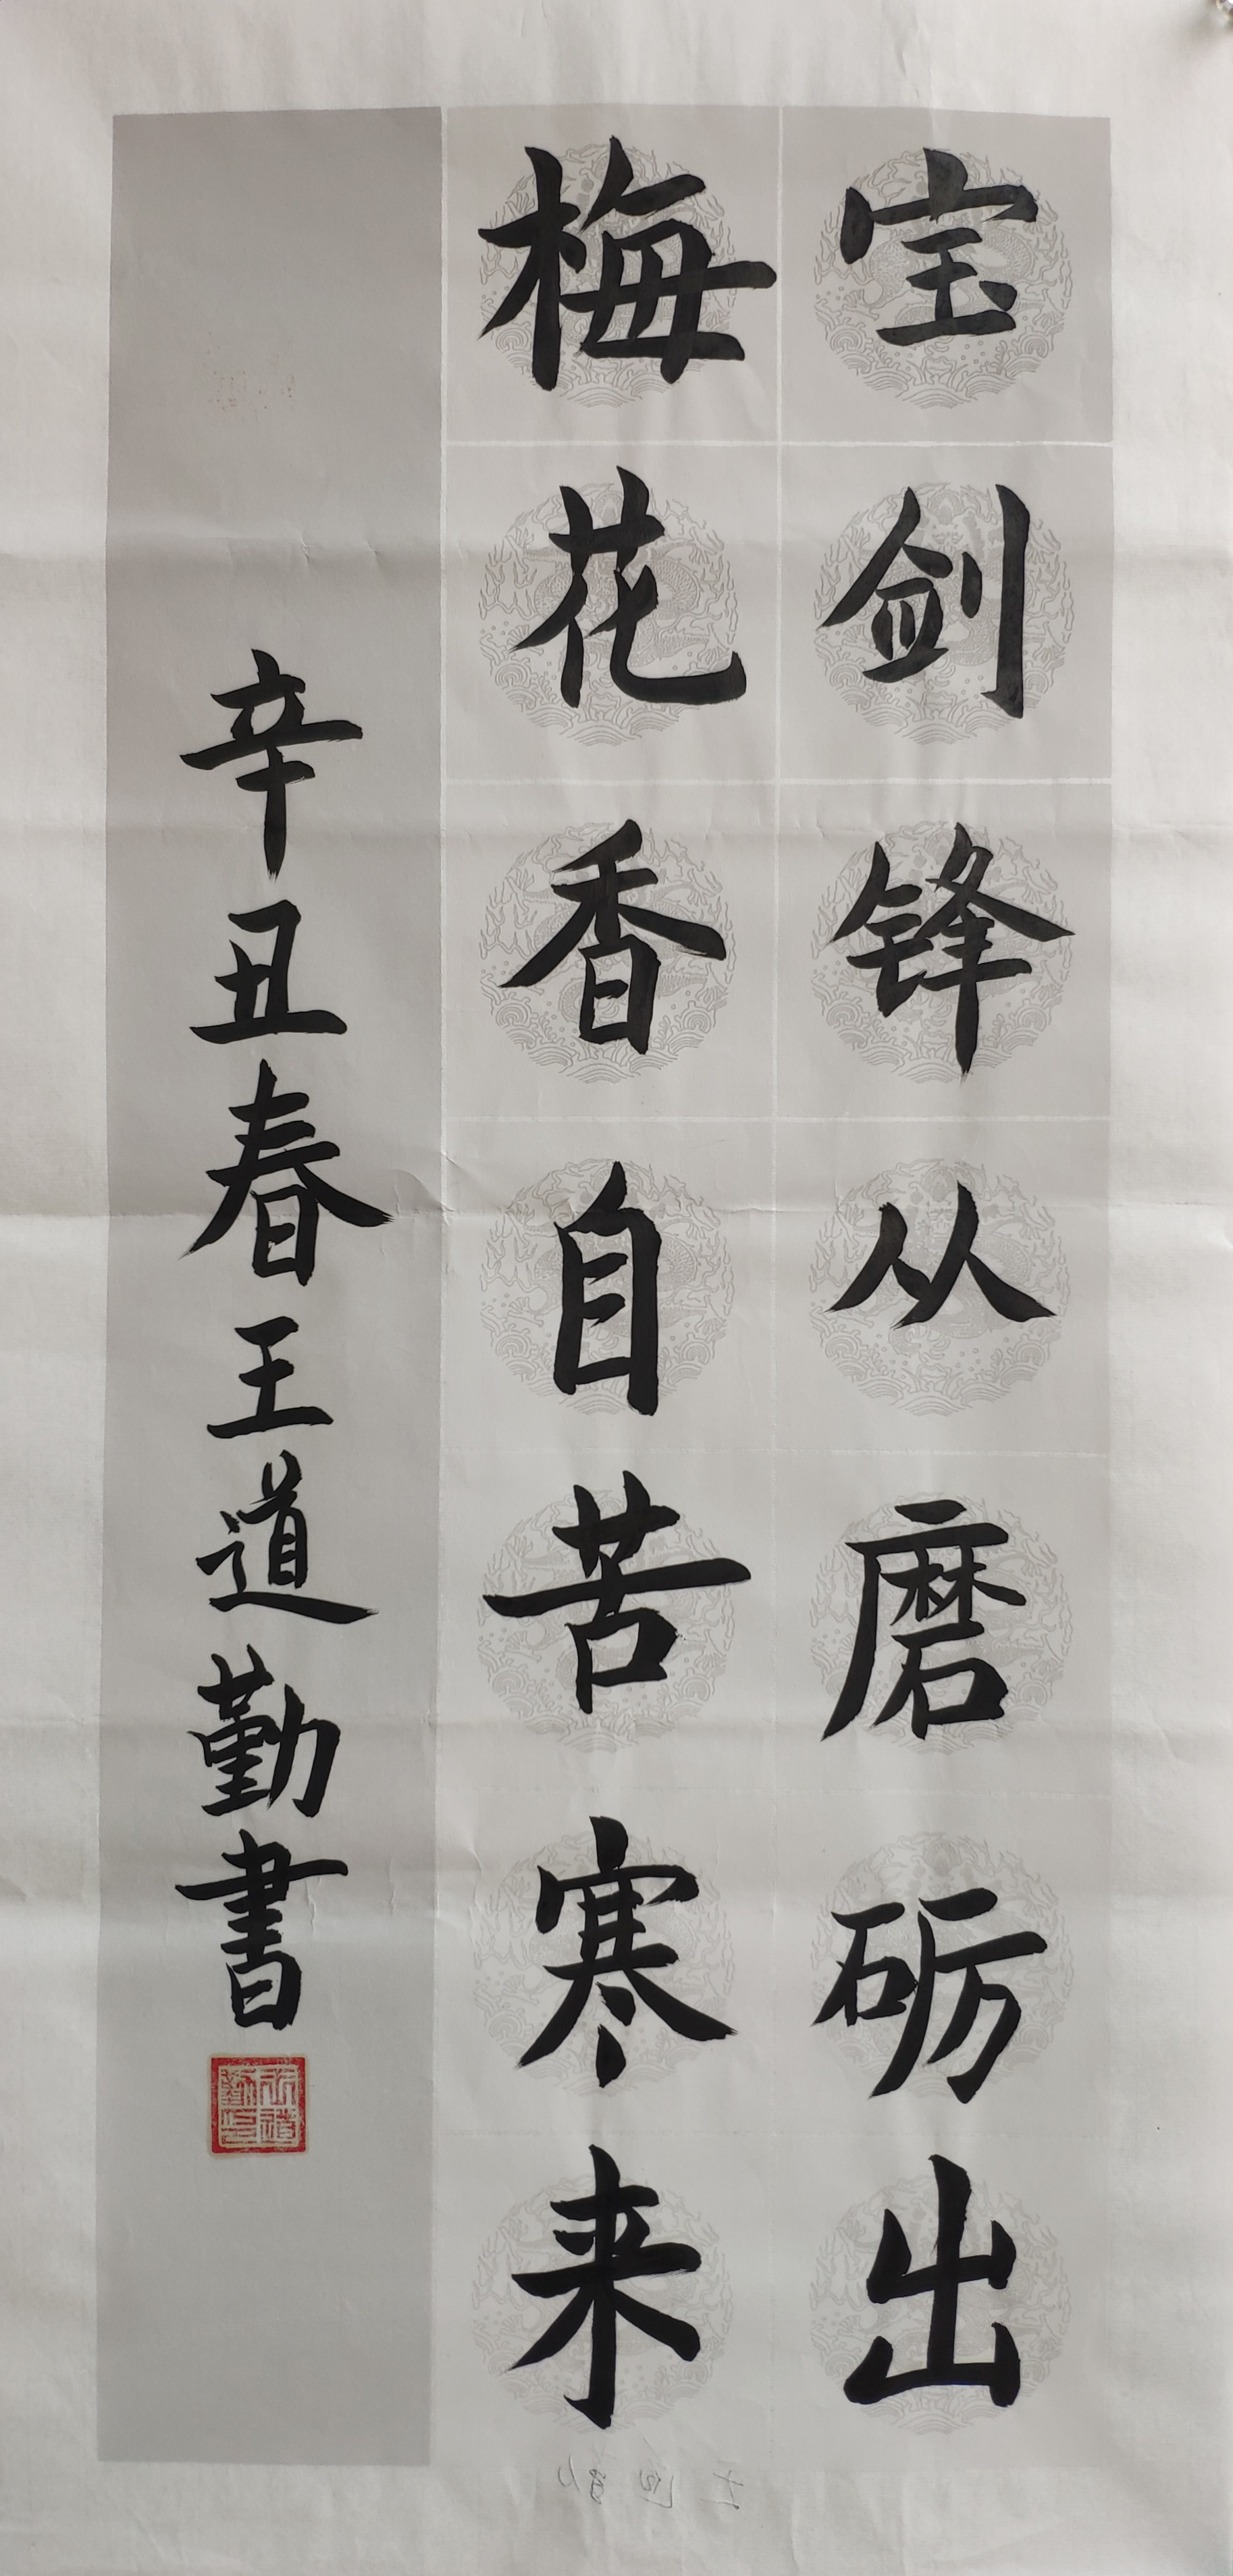 宝剑锋从磨砺出
梅花香自苦寒来
辛丑春王道勤書